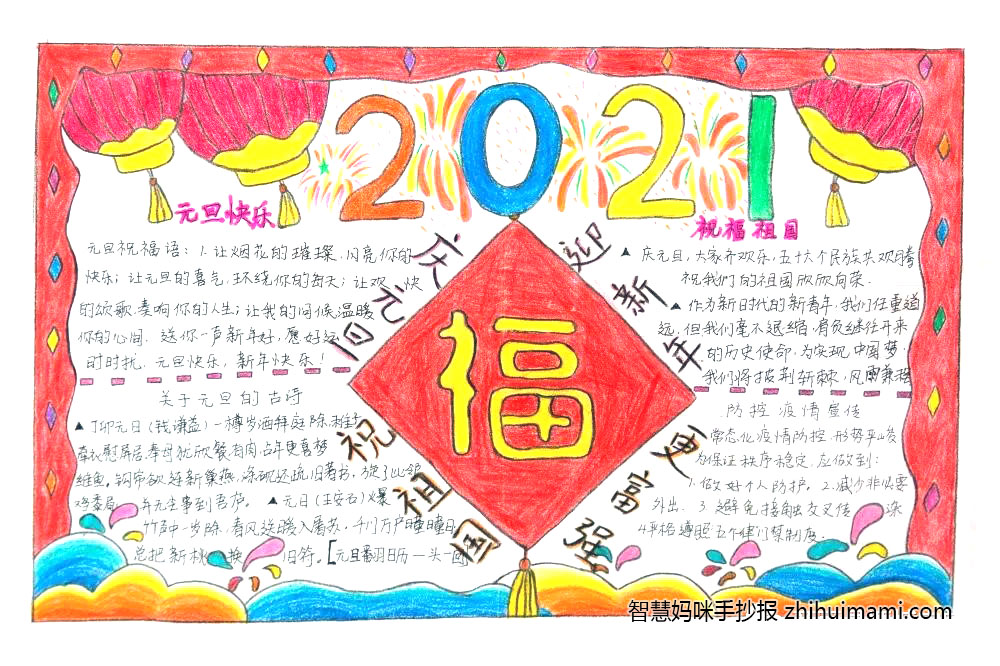 2021
元旦快乐
元旦祝福语：1.让烟花的璀璨，闪亮你的
快乐；让元旦的喜气，环绕你的每天；让欢快
的颂歌，奏响你的人生；让我的问候，温暖
你的心间，送你一声新年好，愿好运
时时扰，元旦快乐，新年快乐！
关于元旦的古诗
▲丁卯元日(钱谦益)一樽岁酒拜庭除，稚子
牵衣慰屏居，奉母犹欣餐有肉，占年更喜梦
维鱼。钩帘欲迓新巢燕，涤砚还疏旧著书，旋了比邻
鸡黍局，并无尘事到吾庐。▲元日(王安石)爆
竹声中一岁除，春风送暖入屠苏，千门万户曈曈日，
总把新桃换旧符。[元旦翻日历一头一回
庆元旦
迎新年
福
祝祖国
更富强
祝福祖国
▲庆元旦，大家齐欢乐，五十六个民族共欢腾
祝我们的祖国欣欣向荣。
▲作为新时代的新青年，我们任重道
远，但我们毫不退缩，肩负继往开来
的历史使命，为实现中国梦，
我们将披荆斩棘，风雨兼程
防控疫情宣传
常态化疫情防控，形势严峻
为保证秩序稳定，应做到：
1.做好个人防护。2.减少非必要
外出。3.避免接触交叉传染
4.严格遵照
智慧妈咪手抄报 zhihuimami.com